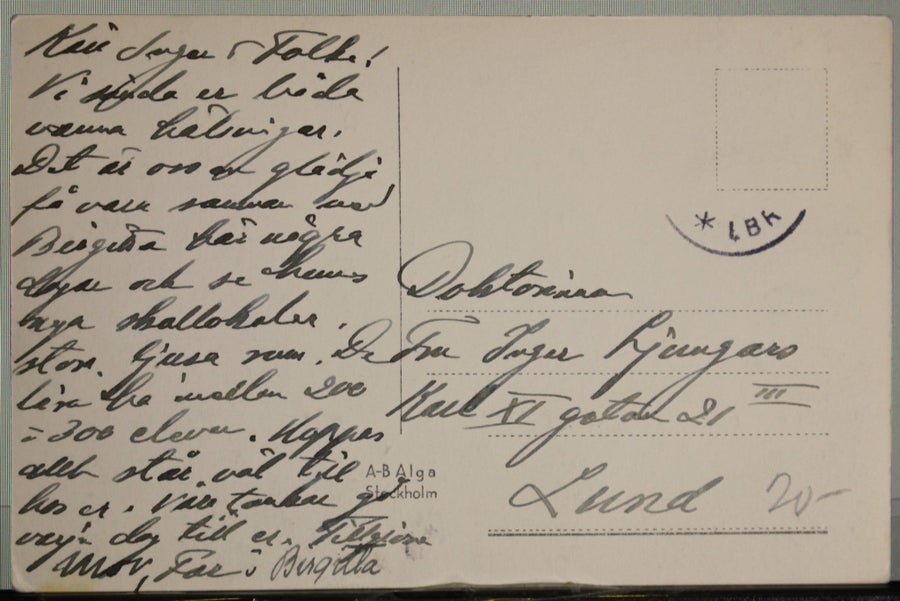 Kära Inger o Folke!
Vi sända er båda
varma hälsningar.
Det är oss en glädje
få vara samman med
Birgitta här några
dagar och se hennes
nya skollokaler.
stora ljusa rum. De
lära ha mellan 200
à 300 elever. Hoppas
allt står väl till
hos er. Våra tankar gå
varje dag till er. Tillgivna
Mor, Far o Birgitta
LBK
Doktorinnan
Fru Inger Ljungars
Karl XI gatan 21 III
Lund
20-
A-B Alga
Stockholm